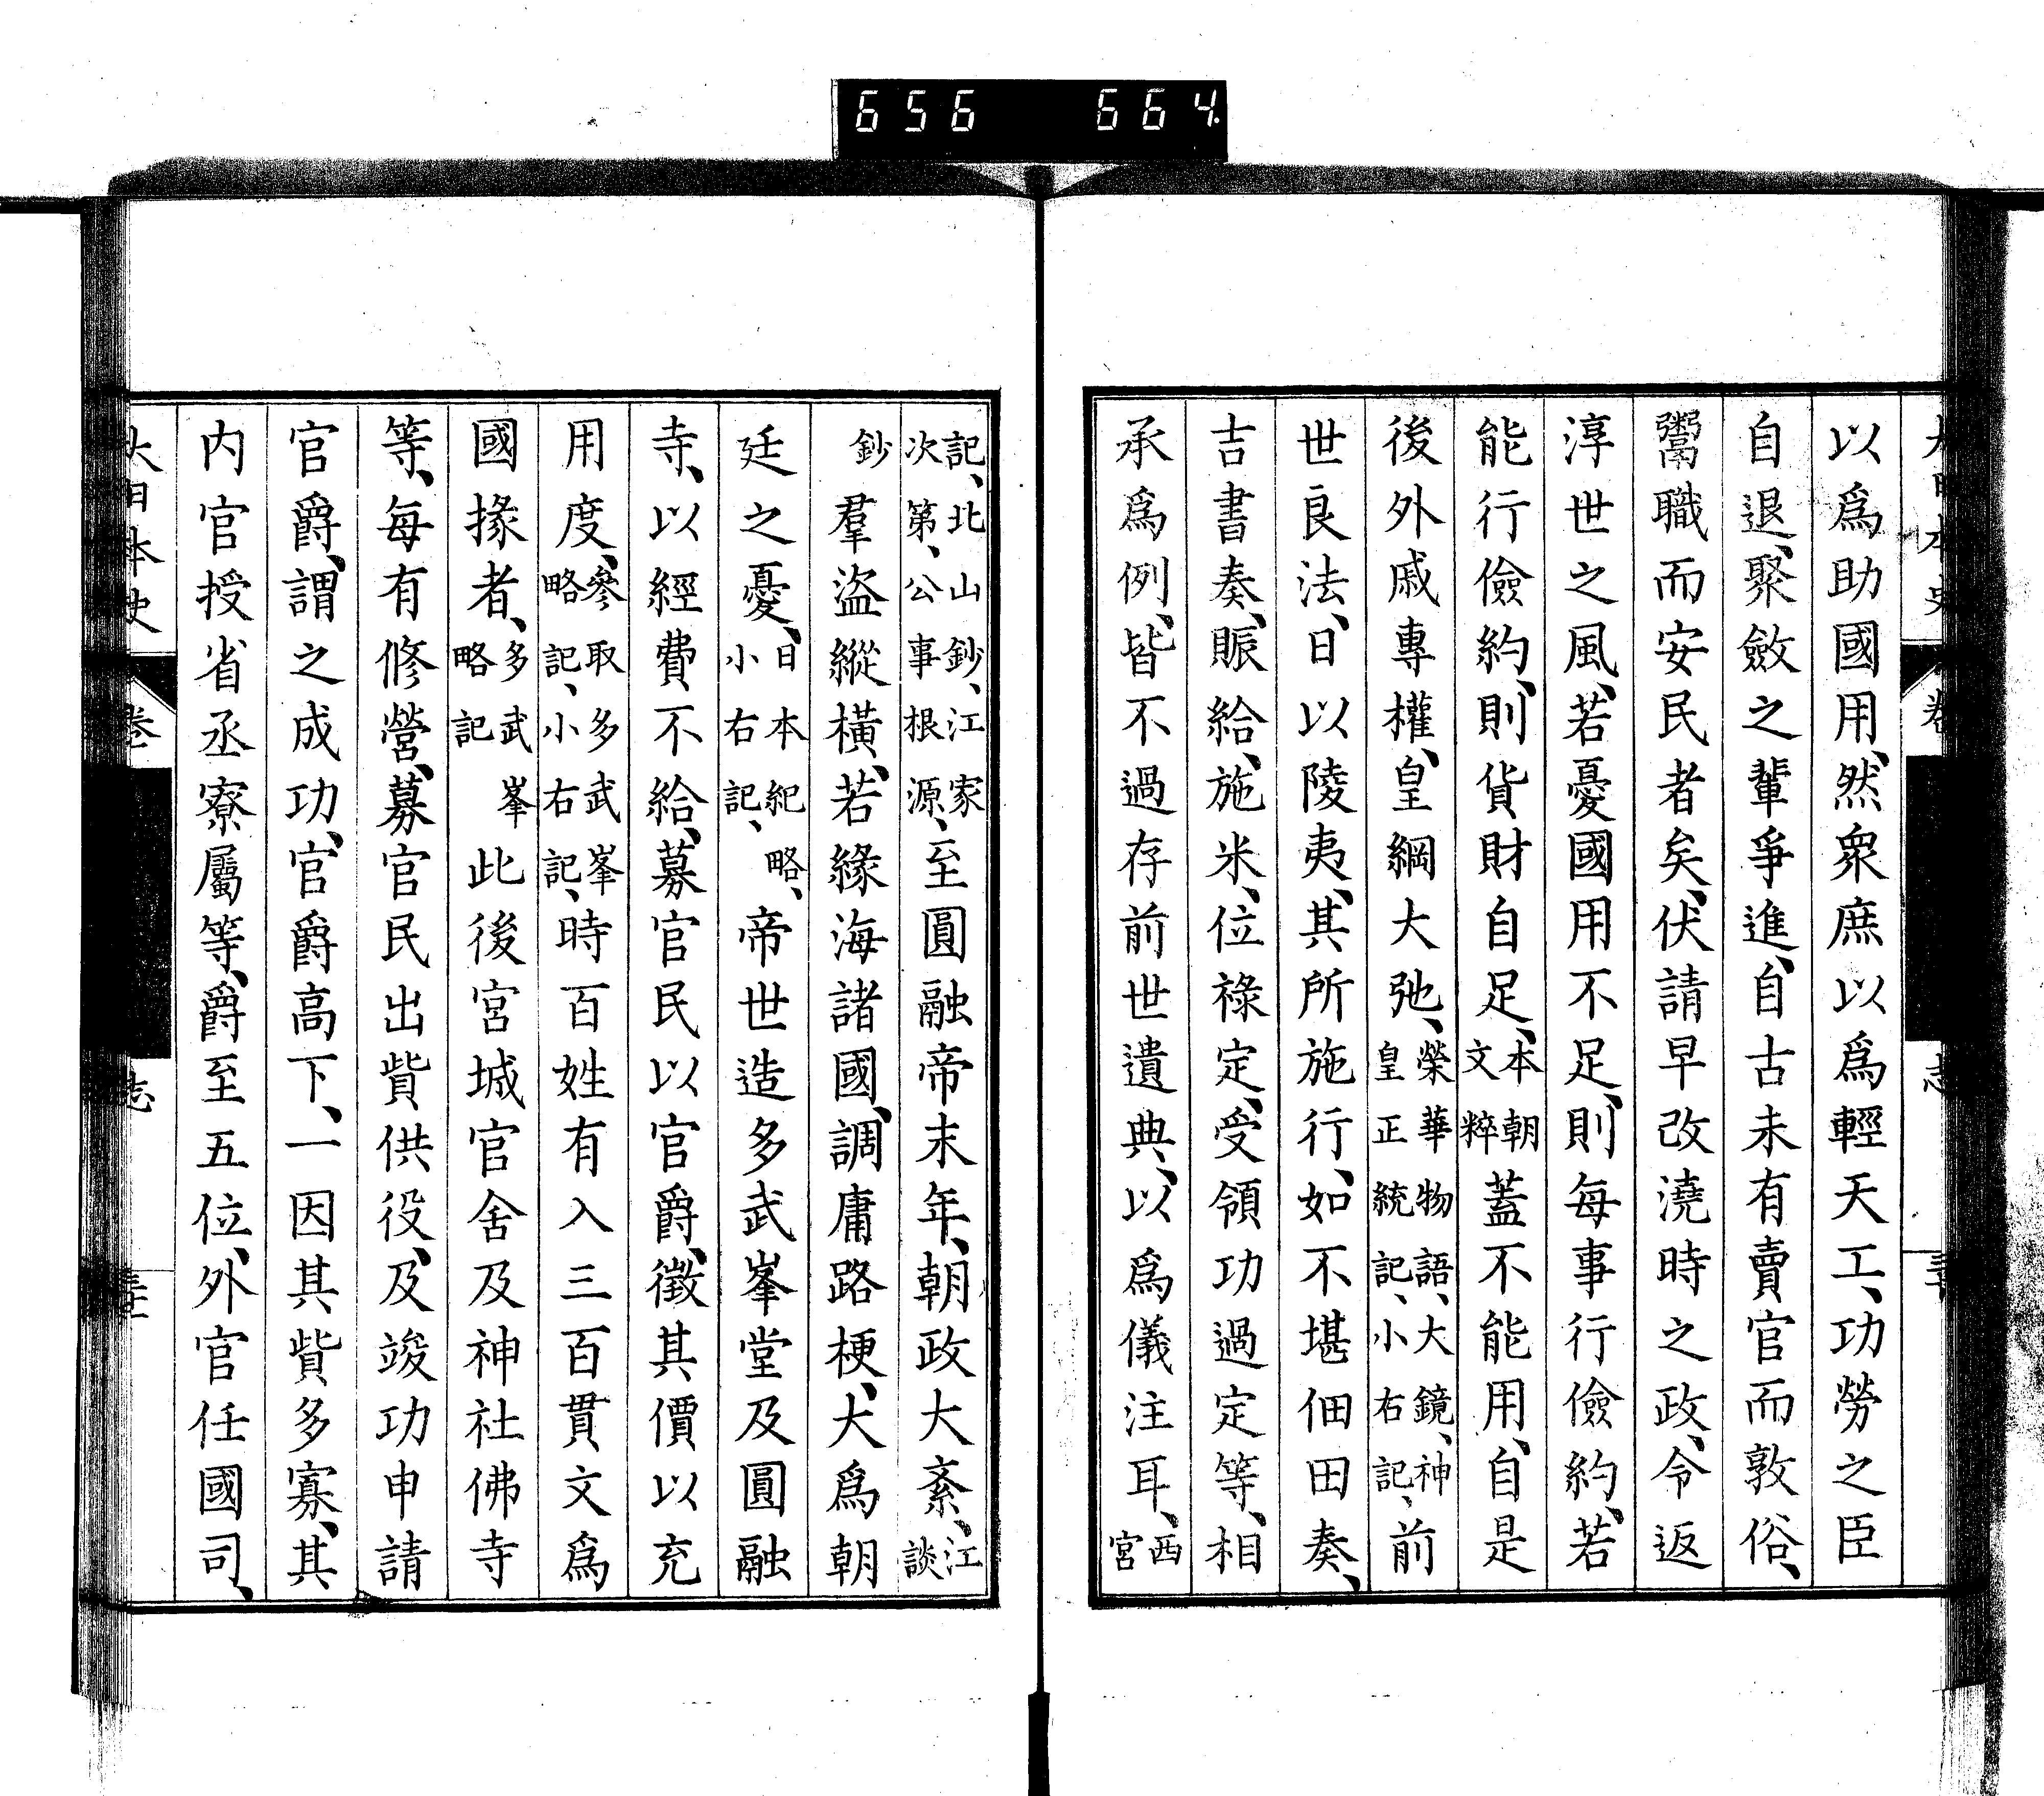 656 664
以爲助國用、然衆庶以爲輕天工、功勞之臣
自退、聚斂之輩爭進、自古未有賣官而敦俗、
鬻職而安民者矣、伏請早改澆時之政、令返
淳世之風、若憂國用不足、則每事行儉約、若
能行儉約、則貨財自足、本朝文粹蓋不能用、自是
後外戚專權、皇綱大弛、榮華物語、大鏡、神皇正統記、小右記、前
世良法、日以陵夷、其所施行、如不堪佃田奏、
吉書奏、賑給、施米、位祿定、受領功過定等、相
承爲例、皆不過存前世遺典、以爲儀注耳、西宮
記、北山鈔、江家次第、公事根源、至圓融帝末年、朝政大紊、江談
鈔羣盜縱橫、若緣海諸國、調庸路梗、大爲朝
廷之憂、日本紀略、小右記、帝世造多武峯堂及圓融
寺、以經費不給、募官民以官爵、徵其價以充
用度、參取多武峯略記、小右記、時百姓有入三百貫文爲
國掾者、多武峯略記此後宮城官舍及神社佛寺
等、每有修營、募官民出貲供役、及竣功申請
官爵、謂之成功、官爵高下、一因其貲多寡、其
内官授省丞寮屬等、爵至五位、外官任國司、
大日本史 卷 志